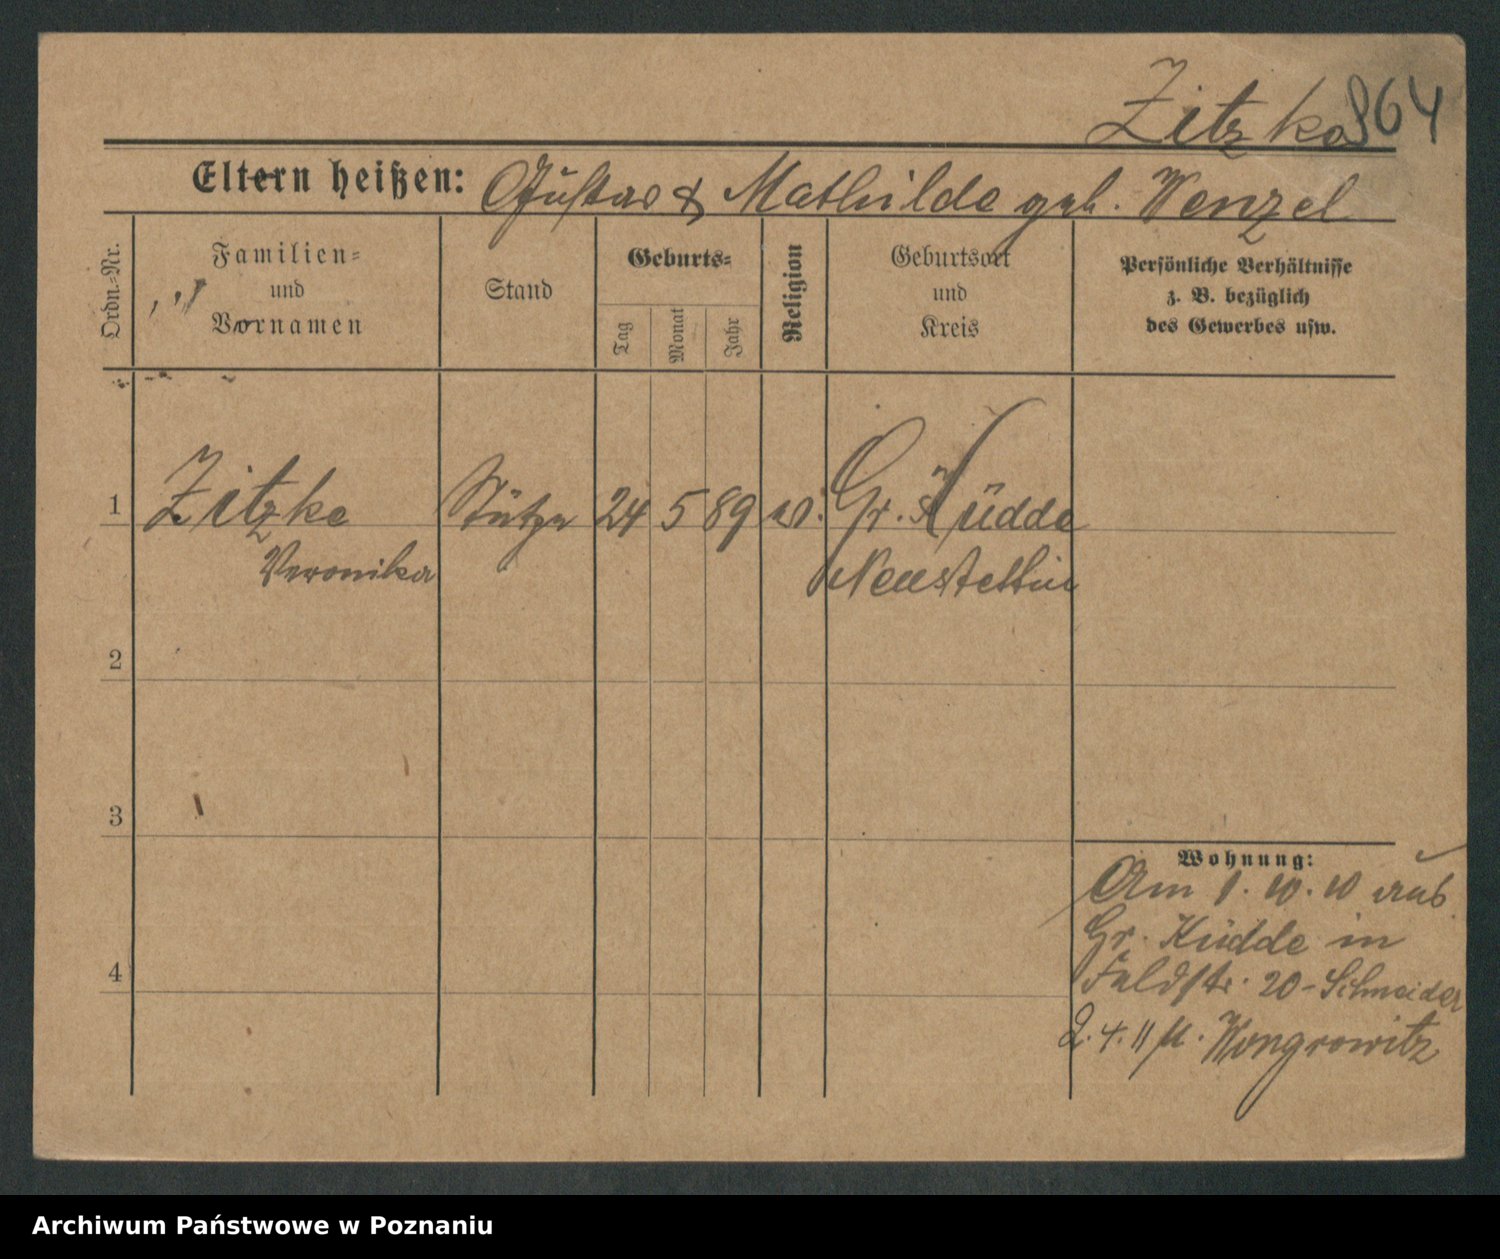 Zitzke 864
Eltern heißen: Gustav & Mathilde geb. Wenzel
Ordn.-Nr.
Familien-
und
Vornamen
Stand
Geburts-
Tag
Monat
Jahr
Religion
Geburtsort
und
Kreis
Persönliche Verhältnisse
z. B. bezüglich
des Gewerbes usw.
1 Zitzke Stütze 24 5 89 Gr. Küdde
Veronika Neustettin
2
3
4
Wohnung:
Am 1. 10. 10 aus
Gr. Küdde in
Feldstr. 20 - Schneider
2. 4. 11 n. Wongrowitz
Archiwum Państwowe w Poznaniu